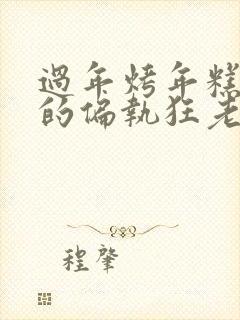 過年烤年糕
的偏執狂老
程肇